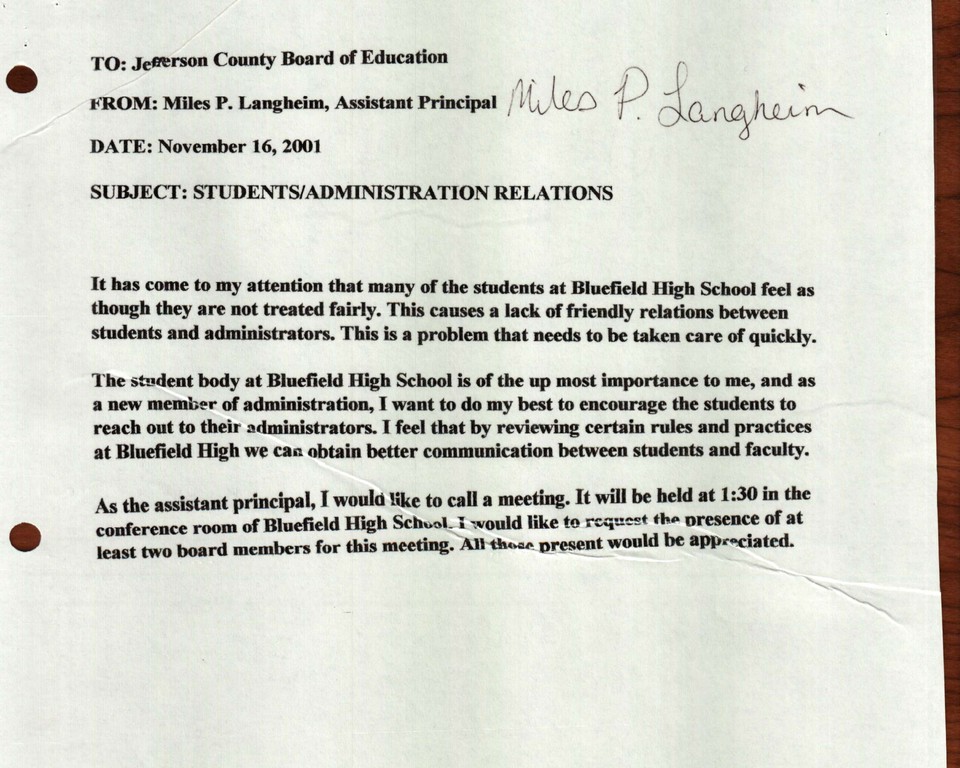 TO: Jefferson County Board of Education
FROM: Miles P. Langheim, Assistant Principal Miles P. Langheim
DATE: November 16, 2001
SUBJECT: STUDENTS/ADMINISTRATION RELATIONS
It has come to my attention that many of the students at Bluefield High School feel as
though they are not treated fairly. This causes a lack of friendly relations between
students and administrators. This is a problem that needs to be taken care of quickly.
The student body at Bluefield High School is of the up most importance to me, and as
a new member of administration, I want to do my best to encourage the students to
reach out to their administrators. I feel that by reviewing certain rules and practices
at Bluefield High we can obtain better communication between students and faculty.
As the assistant principal, I would like to call a meeting. It will be held at 1:30 in the
conference room of Bluefield High School. I would like to request the presence of at
least two board members for this meeting. All those present would be appreciated.